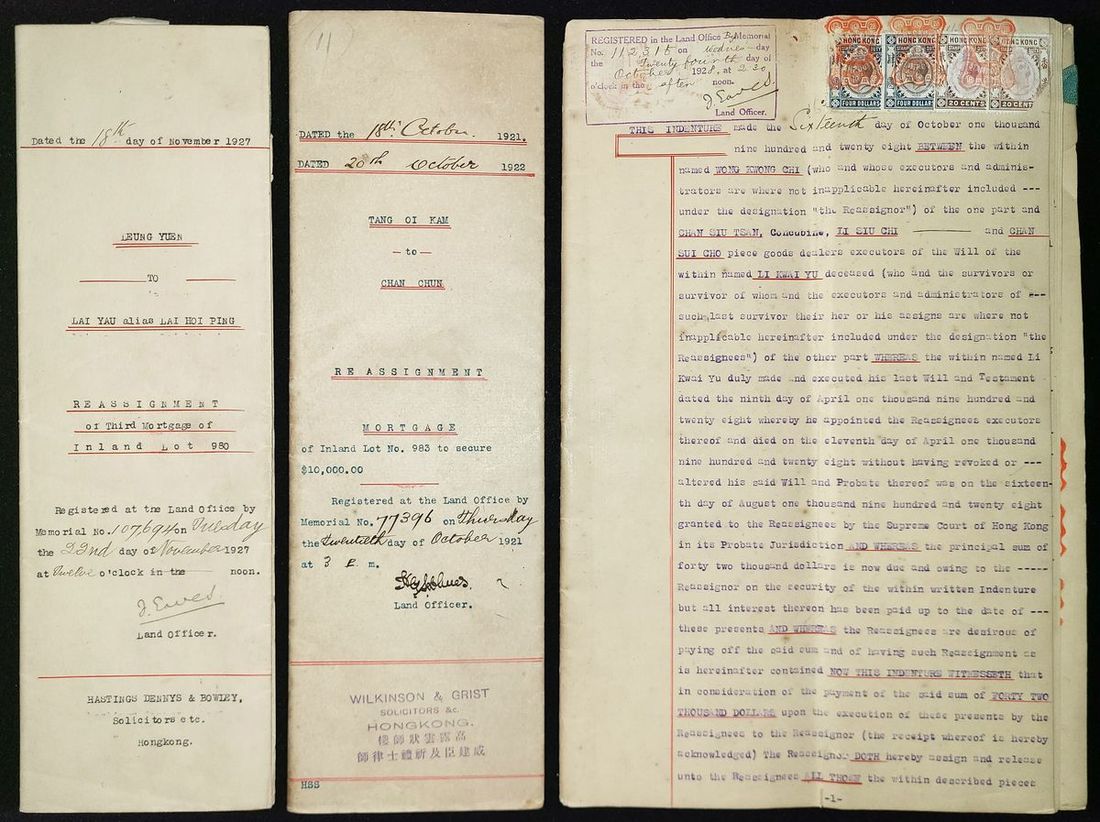 Dated the 18th day of November 1927
LEUNG YUEN
TO
LAI YAU alias LAI HOI PING
REASSIGNMENT
of Third Mortgage of
Inland Lot 980
Registered at the Land Office by
Memorial No. 107,694 on Tuesday
the 22nd day of November 1927
at Twelve o'clock in the noon.
J. Eaves
Land Officer.
HASTINGS DENNYS & BOWLEY,
Solicitors etc.
Hongkong.
11
DATED the 18th October 1921.
DATED 20th October 1922
TANG OI KAM
— to —
CHAN CHUN
REASSIGNMENT
MORTGAGE
of Inland Lot No. 983 to secure
$10,000.00
Registered at the Land Office by
Memorial No. 77396 on Thursday
the twentieth day of October 1921
at 3 P. m.
Land Officer.
WILKINSON & GRIST
SOLICITORS &c.
HONGKONG.
高露雲狀師樓
威建臣及祈禮士律師
HSS
REGISTERED in the Land Office By Memorial
No. 112,315 on Wednes-day
the Twenty fourth day of
October 1928, at 2.30
o'clock in the after noon.
J. Eaves
Land Officer.
HONG KONG
FOUR DOLLARS
HONG KONG
FOUR DOLLARS
HONG KONG
20 CENTS
HONG KONG
20 CENT
THIS INDENTURE made the Sixteenth day of October one thousand
nine hundred and twenty eight BETWEEN the within
named WONG KWONG CHI (who and whose executors and adminis-
trators are where not inapplicable hereinafter included ---
under the designation "the Reassignor") of the one part and
CHAN SIU TSAN, Concubine, LI SIU CHI and CHAN
SUI CHO piece goods dealers executors of the Will of the
within named LI KWAI YU deceased (who and the survivors or
survivor of whom and the executors and administrators of ---
such last survivor their her or his assigns are where not
inapplicable hereinafter included under the designation "the
Reassignees") of the other part WHEREAS the within named Li
Kwai Yu duly made and executed his last Will and Testament
dated the ninth day of April one thousand nine hundred and
twenty eight whereby he appointed the Reassignees executors
thereof and died on the eleventh day of April one thousand
nine hundred and twenty eight without having revoked or ---
altered his said Will and Probate thereof was on the sixteen-
th day of August one thousand nine hundred and twenty eight
granted to the Reassignees by the Supreme Court of Hong Kong
in its Probate Jurisdiction AND WHEREAS the principal sum of
forty two thousand dollars is now due and owing to the -----
Reassignor on the security of the within written Indenture
but all interest thereon has been paid up to the date of ---
these presents AND WHEREAS the Reassignees are desirous of
paying off the said sum and of having such Reassignment as
is hereinafter contained NOW THIS INDENTURE WITNESSETH that
in consideration of the payment of the said sum of FORTY TWO
THOUSAND DOLLARS upon the execution of these presents by the
Reassignees to the Reassignor (the receipt whereof is hereby
acknowledged) The Reassignor DOTH hereby assign and release
unto the Reassignees ALL THOSE the within described pieces
-1-